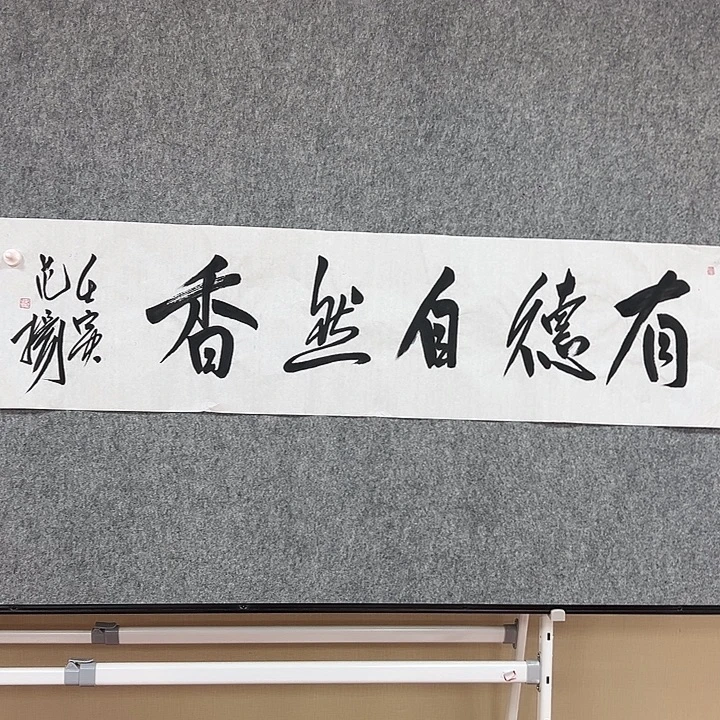 有德自然香
壬寅
范揚